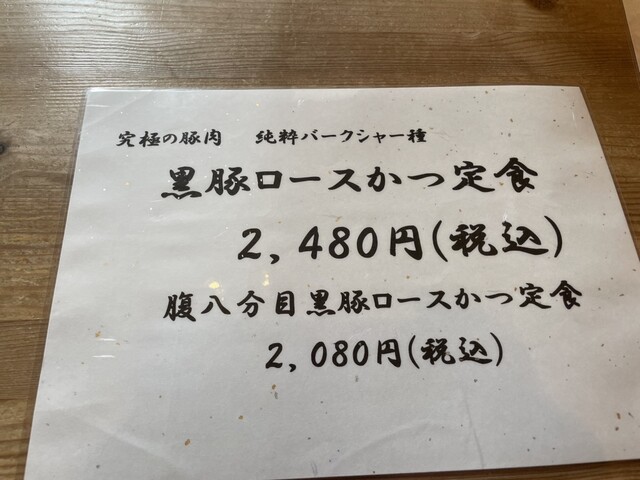 究極の豚肉　純粋バークシャー種
黒豚ロースかつ定食
2,480円(税込)
腹八分目黒豚ロースかつ定食
2,080円(税込)